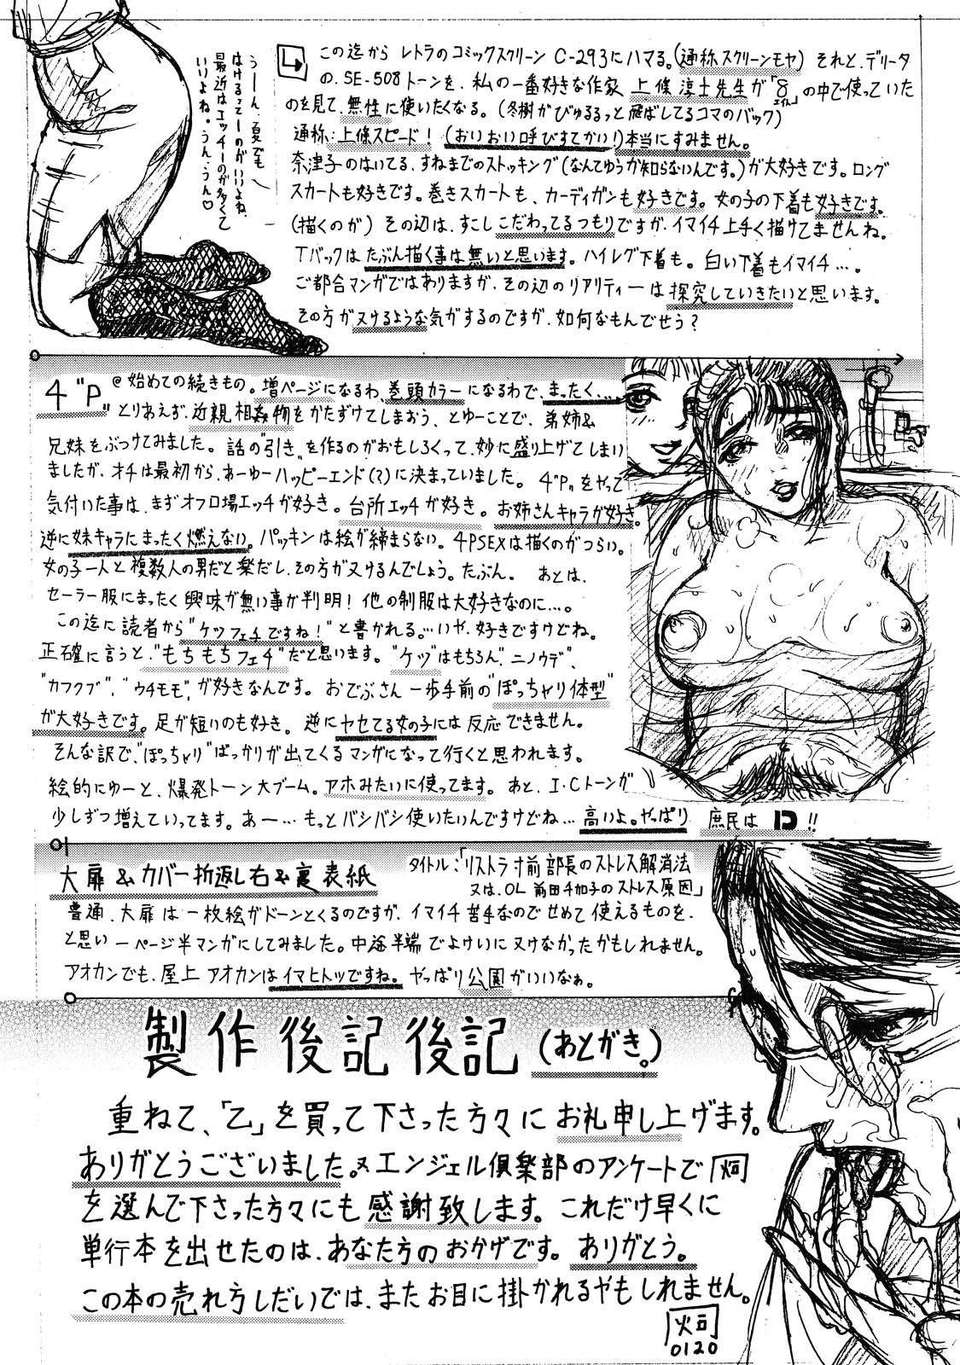 この迄から レトラのコミックスクリーン C-293にハマる。(通称スクリーンモヤ) それと、デリータ
の、SE-508トーンを、私の一番好きな作家 上條淳士先生が「8」の中で使っていた
のを見て、無性に使いたくなる。(冬樹がびゅるるっと飛ばしてるコマのバック)
通称:上條スピード! (おいおい呼びすてかい!)本当にすみません。
奈津子のはいてる、すねまでのストッキング(なんてゆうか知らないんです。)が大好きです。ロング
スカートも好きです。巻きスカートも、カーディガンも好きです。女の子の下着も好きです。
(描くのが) その辺は、すこしこだわってるつもりですが、イマイチ上手く描けてませんね。
Tバックはたぶん描く事は無いと思います。ハイレグ下着も。白い下着もイマイチ…。
ご都合マンガではありますが、その辺のリアリティーは探究していきたいと思います。
その方がヌけるような気がするのですが、如何なもんでせう?
うーん、夏でも
はけるってーのがいけよね、
最近はエッチーのが多くて
いけよね。うん、うん♡
4"P"
@始めての続きもの。増ページになるわ、巻頭カラーになるわで、まったく…。
とりあえず、近親相姦物をかたずけてしまおう、とゆーことで、弟姉&
兄妹をぶつけてみました。話の"引き"を作るのがおもしろくって、妙に盛り上げてしまい
ましたが、オチは最初から、あーゆーハッピーエンド(?)に決まっていました。4"P"をやって
気付いた事は、まずオフロ場エッチが好き。台所エッチが好き。お姉さんキャラが好き。
逆に妹キャラにまったく燃えない。パッキンは絵が締まらない。4PSEXは描くのがつらい。
女の子一人と複数人の男だと楽だし、その方がヌけるんでしょう。たぶん。 あとは、
セーラー服にまったく興味が無い事が判明! 他の制服は大好きなのに…。
この迄に読者から"ケツフェチですね!"と書かれる。…いや、好きですけどね。
正確に言うと、"もちもちフェチ"だと思います。"ケツ"はもちろん、"ニノウデ"、
"カフクブ"、"ウチモモ"、が好きなんです。おでぶさん一歩手前の"ぽっちゃり体型"
が大好きです。足が短いのも好き。逆にヤセてる女の子には反応できません。
そんな訳で、"ぽっちゃり"ばっかりが出てくるマンガになって行くと思われます。
絵的にゆーと、爆発トーン大ブーム。アホみたいに使ってます。あと、I・Cトーンが
少しずつ増えていってます。あー…もっとバシバシ使いたいんですけどね…高いよ。やっぱり 庶民は !!
大扉&カバー折返し右&裏表紙
タイトル:「リストラ寸前部長のストレス解消法
又は、OL 前田千加子のストレス原因」
普通、大扉は一枚絵がドーンとくるのですが、イマイチ苦手なのでせめて使えるものを、
と思い一ページ半マンガにしてみました。中途半端でよけいにヌけなかったかもしれません。
アオカンでも、屋上アオカンはイマヒトツですね。やっぱり公園がいいなぁ。
製作後記後記(あとがき。)
重ねて、「乙」を買って下さった方々にお礼申し上げます。
ありがとうございました。ヌエンジェル倶楽部のアンケートで
を選んで下さった方々にも感謝致します。これだけ早くに
単行本を出せたのは、あなた方のおかげです。ありがとう。
この本の売れ方しだいでは、またお目に掛かれるやもしれません。
0120